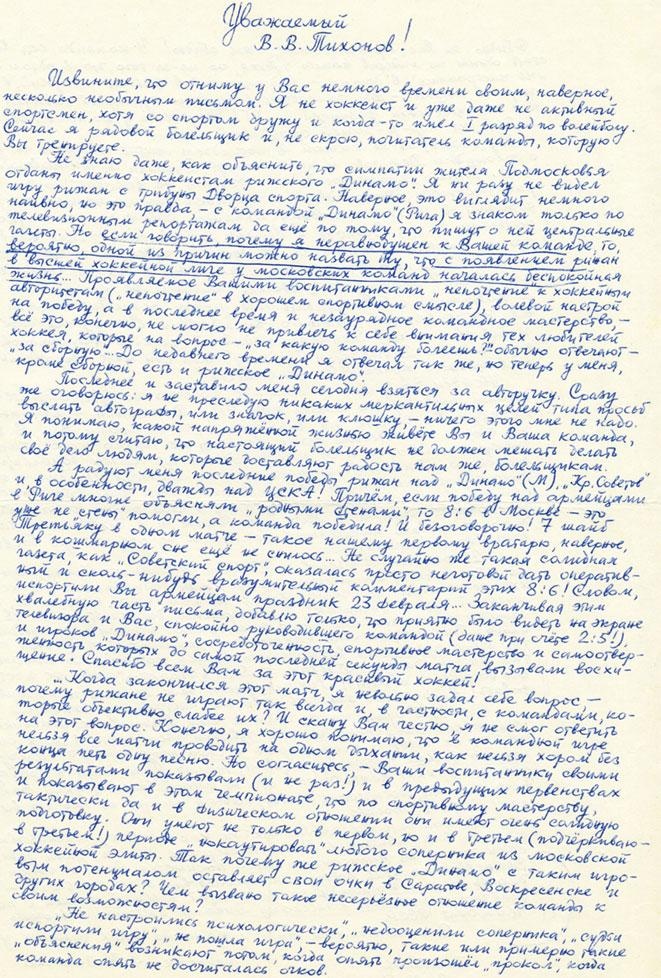 Уважаемый
В. В. Тихонов!
Извините, что отниму у Вас немного времени своим, наверное,
несколько необычным письмом. Я не хоккеист и уже даже не активный
спортсмен, хотя со спортом дружу и когда-то имел I разряд по волейболу.
Сейчас я рядовой болельщик и, не скрою, почитатель команды, которую
Вы тренируете.
Не знаю даже, как объяснить, что симпатии жителя Подмосковья
отданы именно хоккеистам рижского „Динамо". Я ни разу не видел
игру рижан с трибуны Дворца спорта. Наверное, это выглядит немного
наивно, но это правда, – с командой „Динамо" (Рига) я знаком только по
телевизионным репортажам да ещё по тому, что пишут о ней центральные
газеты. Но если говорить, почему я неравнодушен к Вашей команде, то,
вероятно, одной из причин можно назвать ту, что с появлением рижан
в высшей хоккейной лиге у московских команд началась беспокойная
жизнь... Проявляемое Вашими воспитанниками „непочтение" к хоккейным
авторитетам („непочтение" в хорошем спортивном смысле), волевой настрой
на победу, а в последнее время и незаурядное командное мастерство –
всё это, конечно, не могло не привлечь к себе внимания тех любителей
хоккея, которые на вопрос – „за какую команду болеешь?" обычно отвечают –
„за сборную"... До недавнего времени я отвечал так же, но теперь у меня,
кроме сборной, есть и рижское „Динамо".
Последнее и заставило меня сегодня взяться за авторучку. Сразу
же оговорюсь: я не преследую никаких меркантильных целей типа просьб
выслать автографы, или значок, или клюшку – ничего этого мне не надо.
Я понимаю, какой напряжённой жизнью живёте Вы и Ваша команда,
и потому считаю, что настоящий болельщик не должен мешать делать
своё дело людям, которые доставляют радость нам же, болельщикам.
А радуют меня последние победы рижан над „Динамо" (М), „Кр. Советов"
и в особенности, дважды над ЦСКА! Причём, если победу над армейцами
в Риге многие объясняли „родными стенами", то 8:6 в Москве – это
уже не „стены" помогли, а команда победила! И безоговорочно! 7 шайб
Третьяку в одном матче – такое нашему первому вратарю, наверное,
и в кошмарном сне ещё не снилось... Не случайно же такая солидная
газета, как „Советский спорт", оказалась просто неготовой дать оператив-
ный и сколь-нибудь вразумительный комментарий этих 8:6! Словом,
испортили Вы армейцам праздник 23 февраля... Заканчивая этим
хвалебную часть письма, добавлю только, что приятно было видеть на экране
телевизора и Вас, спокойно руководившего командой (даже при счёте 2:5!),
и игроков „Динамо", сосредоточенность, спортивное мастерство и самоотвер-
женность которых до самой последней секунды матча вызывали восхи-
щение. Спасибо всем Вам за этот красивый хоккей!
... Когда закончился этот матч, я невольно задал себе вопрос, –
почему рижане не играют так всегда и, в частности, с командами, ко-
торые объективно слабее их? И скажу Вам честно, я не смог ответить
на этот вопрос. Конечно, я хорошо понимаю, что в командной игре
нельзя все матчи проводить на одном дыхании, как нельзя хором без
конца петь одну песню. Но согласитесь, – Ваши воспитанники своими
результатами показывали (и не раз!) и в предыдущих первенствах
и показывают в этом чемпионате, что по спортивному мастерству,
тактически да и в физическом отношении они имеют очень солидную
подготовку. Они умеют не только в первом, но и в третьем (подчёркиваю –
в третьем!) периоде „нокаутировать" любого соперника из московской
хоккейной элиты. Так почему же рижское „Динамо" с таким игро-
вым потенциалом оставляет свои очки в Саратове, Воскресенске и
других городах? Чем вызвано такое несерьёзное отношение команды к
своим возможностям?
„Не настроились психологически", „недооценили соперника", „судьи
испортили игру", „не пошла игра", – вероятно, такие или примерно такие
„объяснения" возникают потом, когда опять произошёл „прокол", когда
команда опять не досчиталась очков.